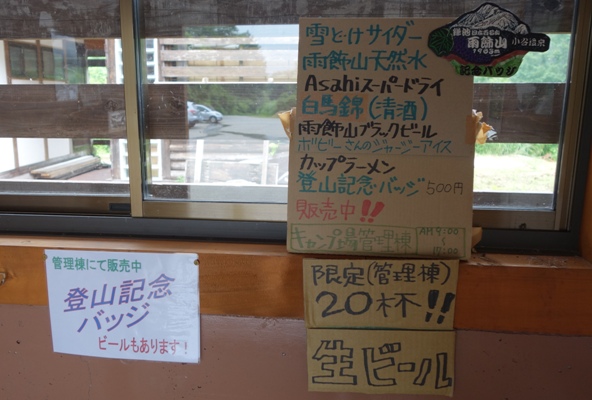 雪どけサイダー
雨飾山天然水
Asahiスーパードライ
白馬錦(清酒)
雨飾山ブラックビール
ボビーさんのジャージーアイス
カップラーメン
登山記念バッジ 500円
販売中!!
キャンプ場管理棟
AM9:00
〜
限定(管理棟)
20杯!!
生ビール
管理棟にて販売中
登山記念
バッジ
ビールもあります!
雨飾山
小谷温泉
1963m
記念バッジ